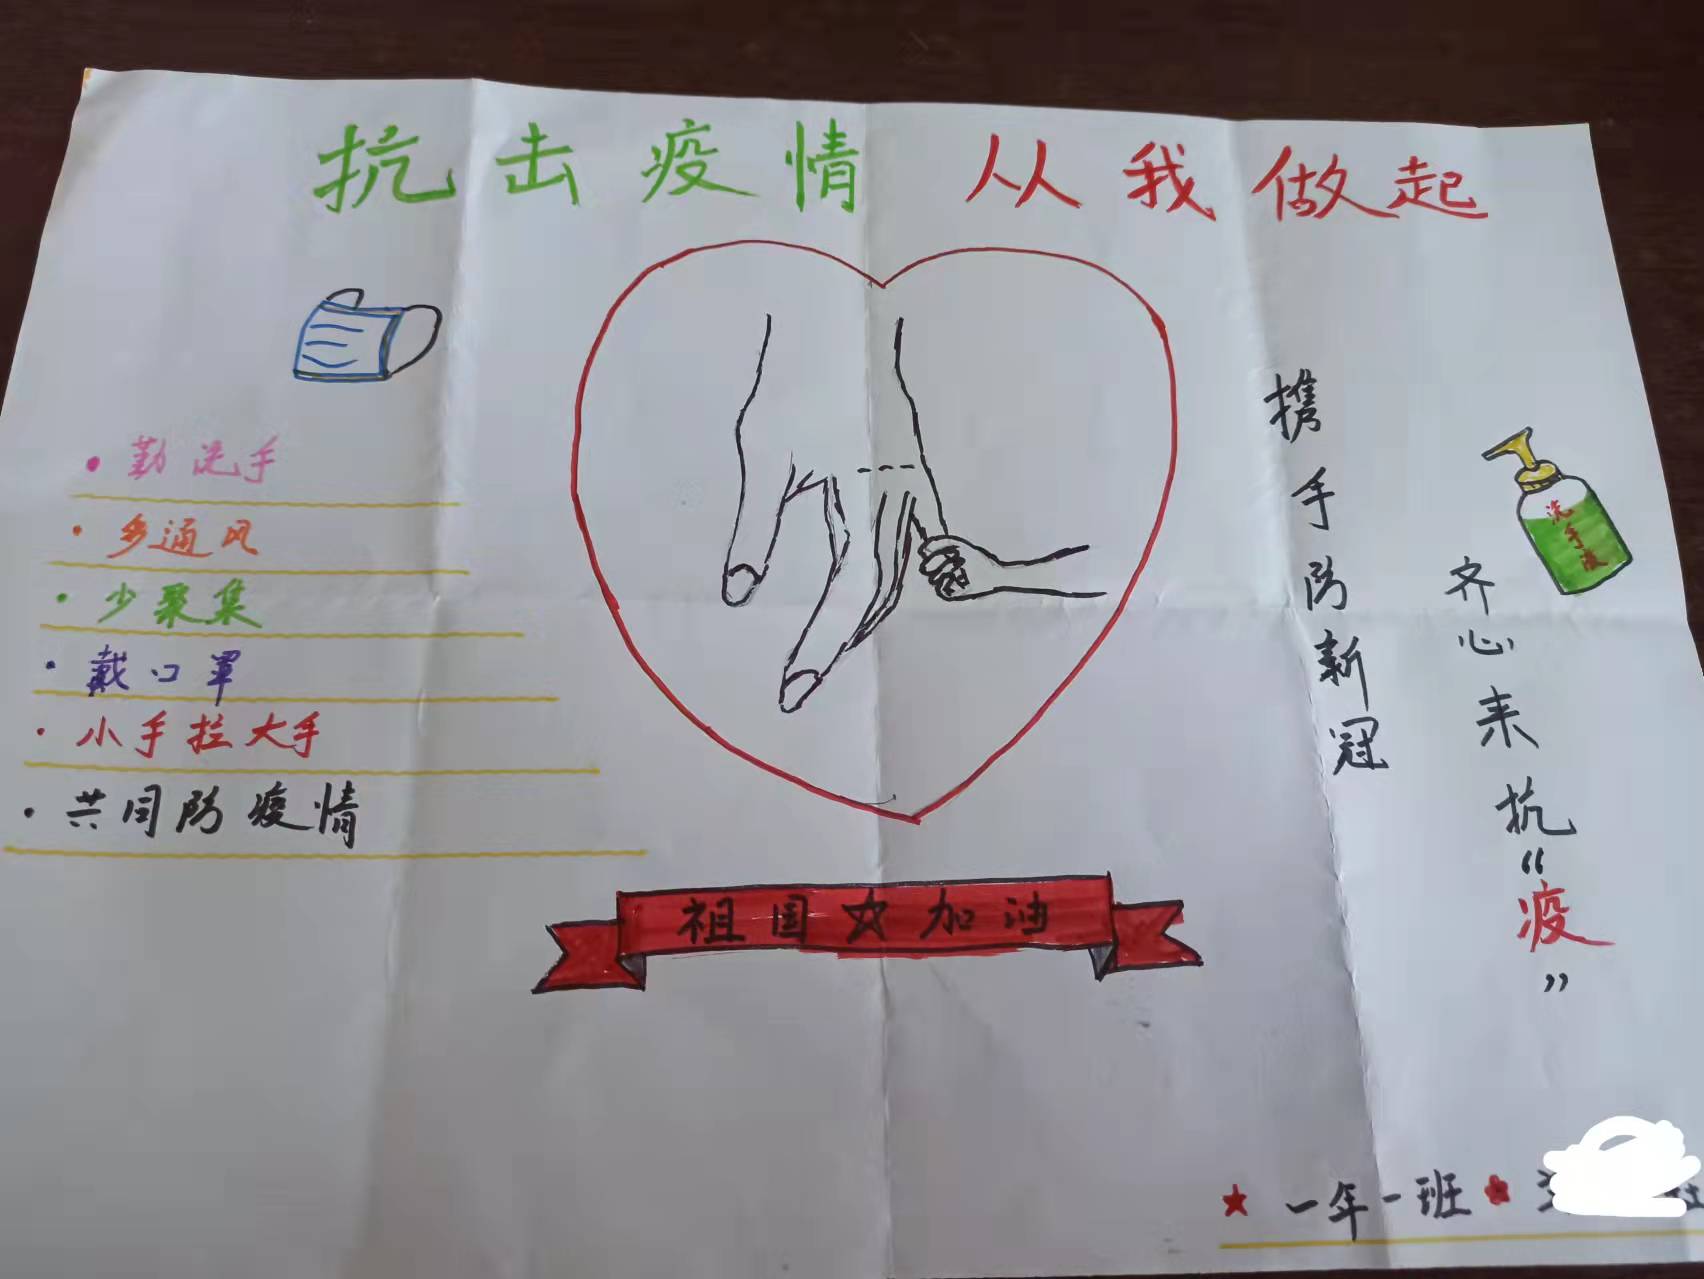 抗击疫情 从我做起
勤洗手
多通风
少聚集
戴口罩
小手拉大手
共同防疫情
携手防新冠
齐心来抗“疫”
洗手液
祖国加油
一年一班